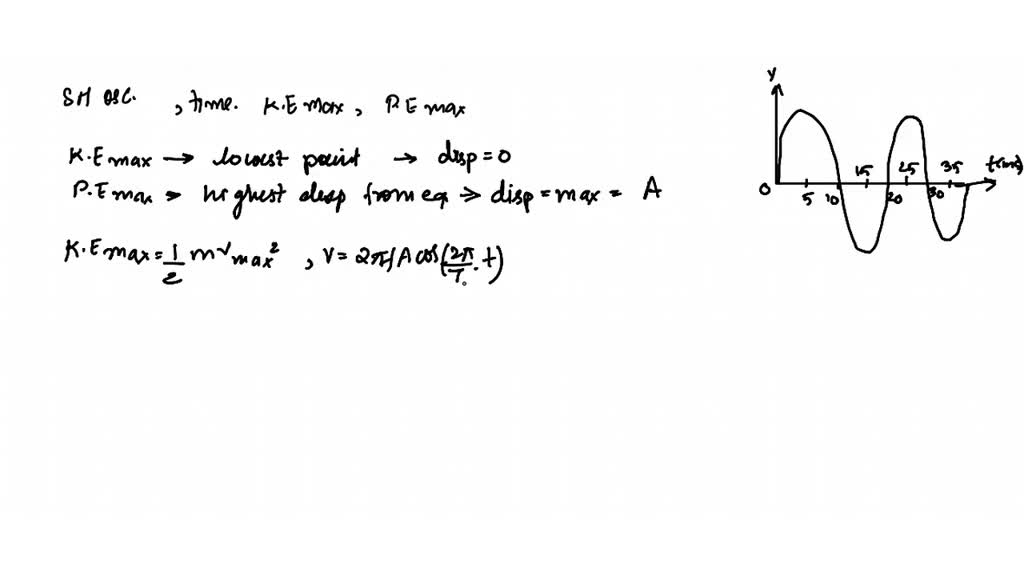 SH osc. , time. K.E max, P.E max
K.E max → lowest point → disp = 0
P.E max → highest disp from eq → disp = max = A
K.E max = 1/2 m v max², V = 2πf A cos(2π/T . t)
y
0 5 10 15 20 25 30 35 t(ms)